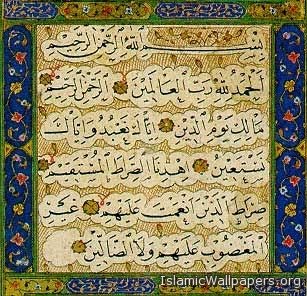 بسم الله الرحمن الرحيم
الحمد لله رب العالمين الرحمن الرحيم
مالك يوم الدين اياك نعبد واياك
نستعين اهدنا الصراط المستقيم
صراط الذين انعمت عليهم غير
المغضوب عليهم ولا الضالين
IslamicWallpapers.org